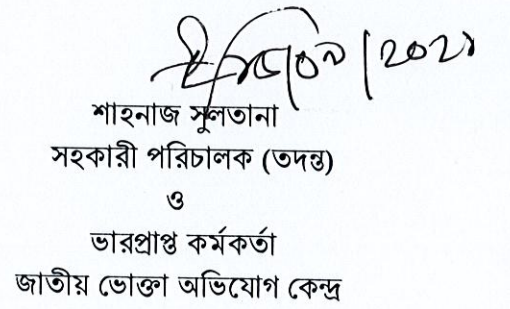 শাহনাজ সুলতানা
সহকারী পরিচালক (তদন্ত)
ও
ভারপ্রাপ্ত কর্মকর্তা
জাতীয় ভোক্তা অভিযোগ কেন্দ্র